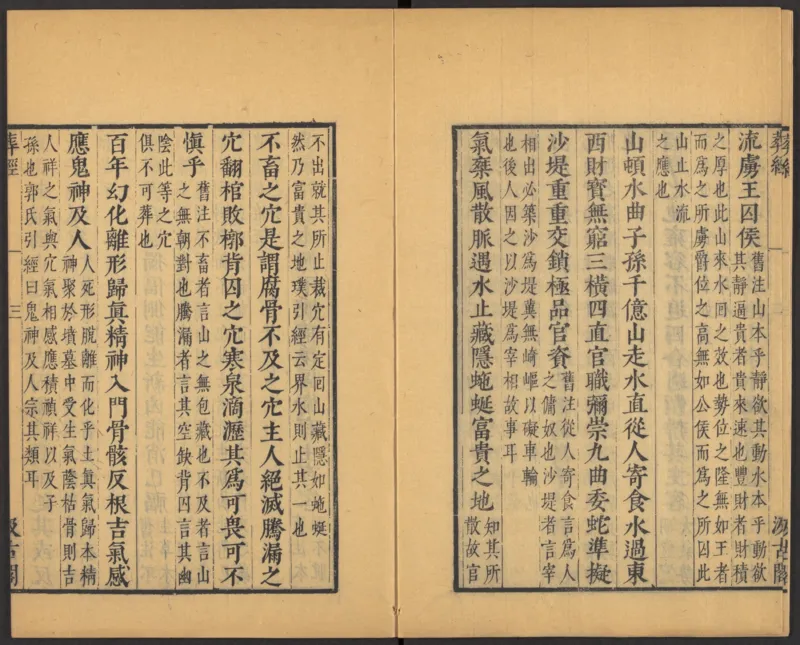 葬經
汲古閣
流虜王囚侯
舊注山本乎靜欲其動水本乎動欲
其靜逼貴者貴來速也豐財者財積
之厚也此山來水回之效也勢位之隆無如王者
而爲之所虜爵位之高無如公侯而爲之所囚此
山止水流
之應也
山頓水曲子孫千億山走水直從人寄食水過東
西財寶無窮三橫四直官職彌崇九曲委蛇準擬
沙堤重重交鎖極品官資
舊注從人寄食言爲人
之傭奴也沙堤者言宰
相出必築沙爲堤冀無崎嶇以礙車輪
也後人因之以沙堤爲宰相故事耳
氣乘風散脈遇水止藏隱蜿蜒富貴之地
知其所
散故官
不出就其所止裁穴有定囘山藏隱如蜿蜒
然乃富貴之地璞引經云界水則止其一也
不畜之穴是謂腐骨不及之穴主人絕滅騰漏之
穴翻棺敗槨背囚之穴寒泉滴瀝其爲可畏可不
愼乎
舊注不畜者言山之無包藏也不及者言山
之無朝對也騰漏者言其空缺背囚言其幽
陰此等之穴
俱不可葬也
百年幻化離形歸眞精神入門骨骸反根吉氣感
應鬼神及人
人死形脫離而化乎土眞氣歸本精
神聚於墳墓中受生氣蔭枯骨則吉
人祥之氣與穴氣相感應積禎祥以及子
孫也郭氏引經曰鬼神及人宗其類耳
葬經
三
汲古閣